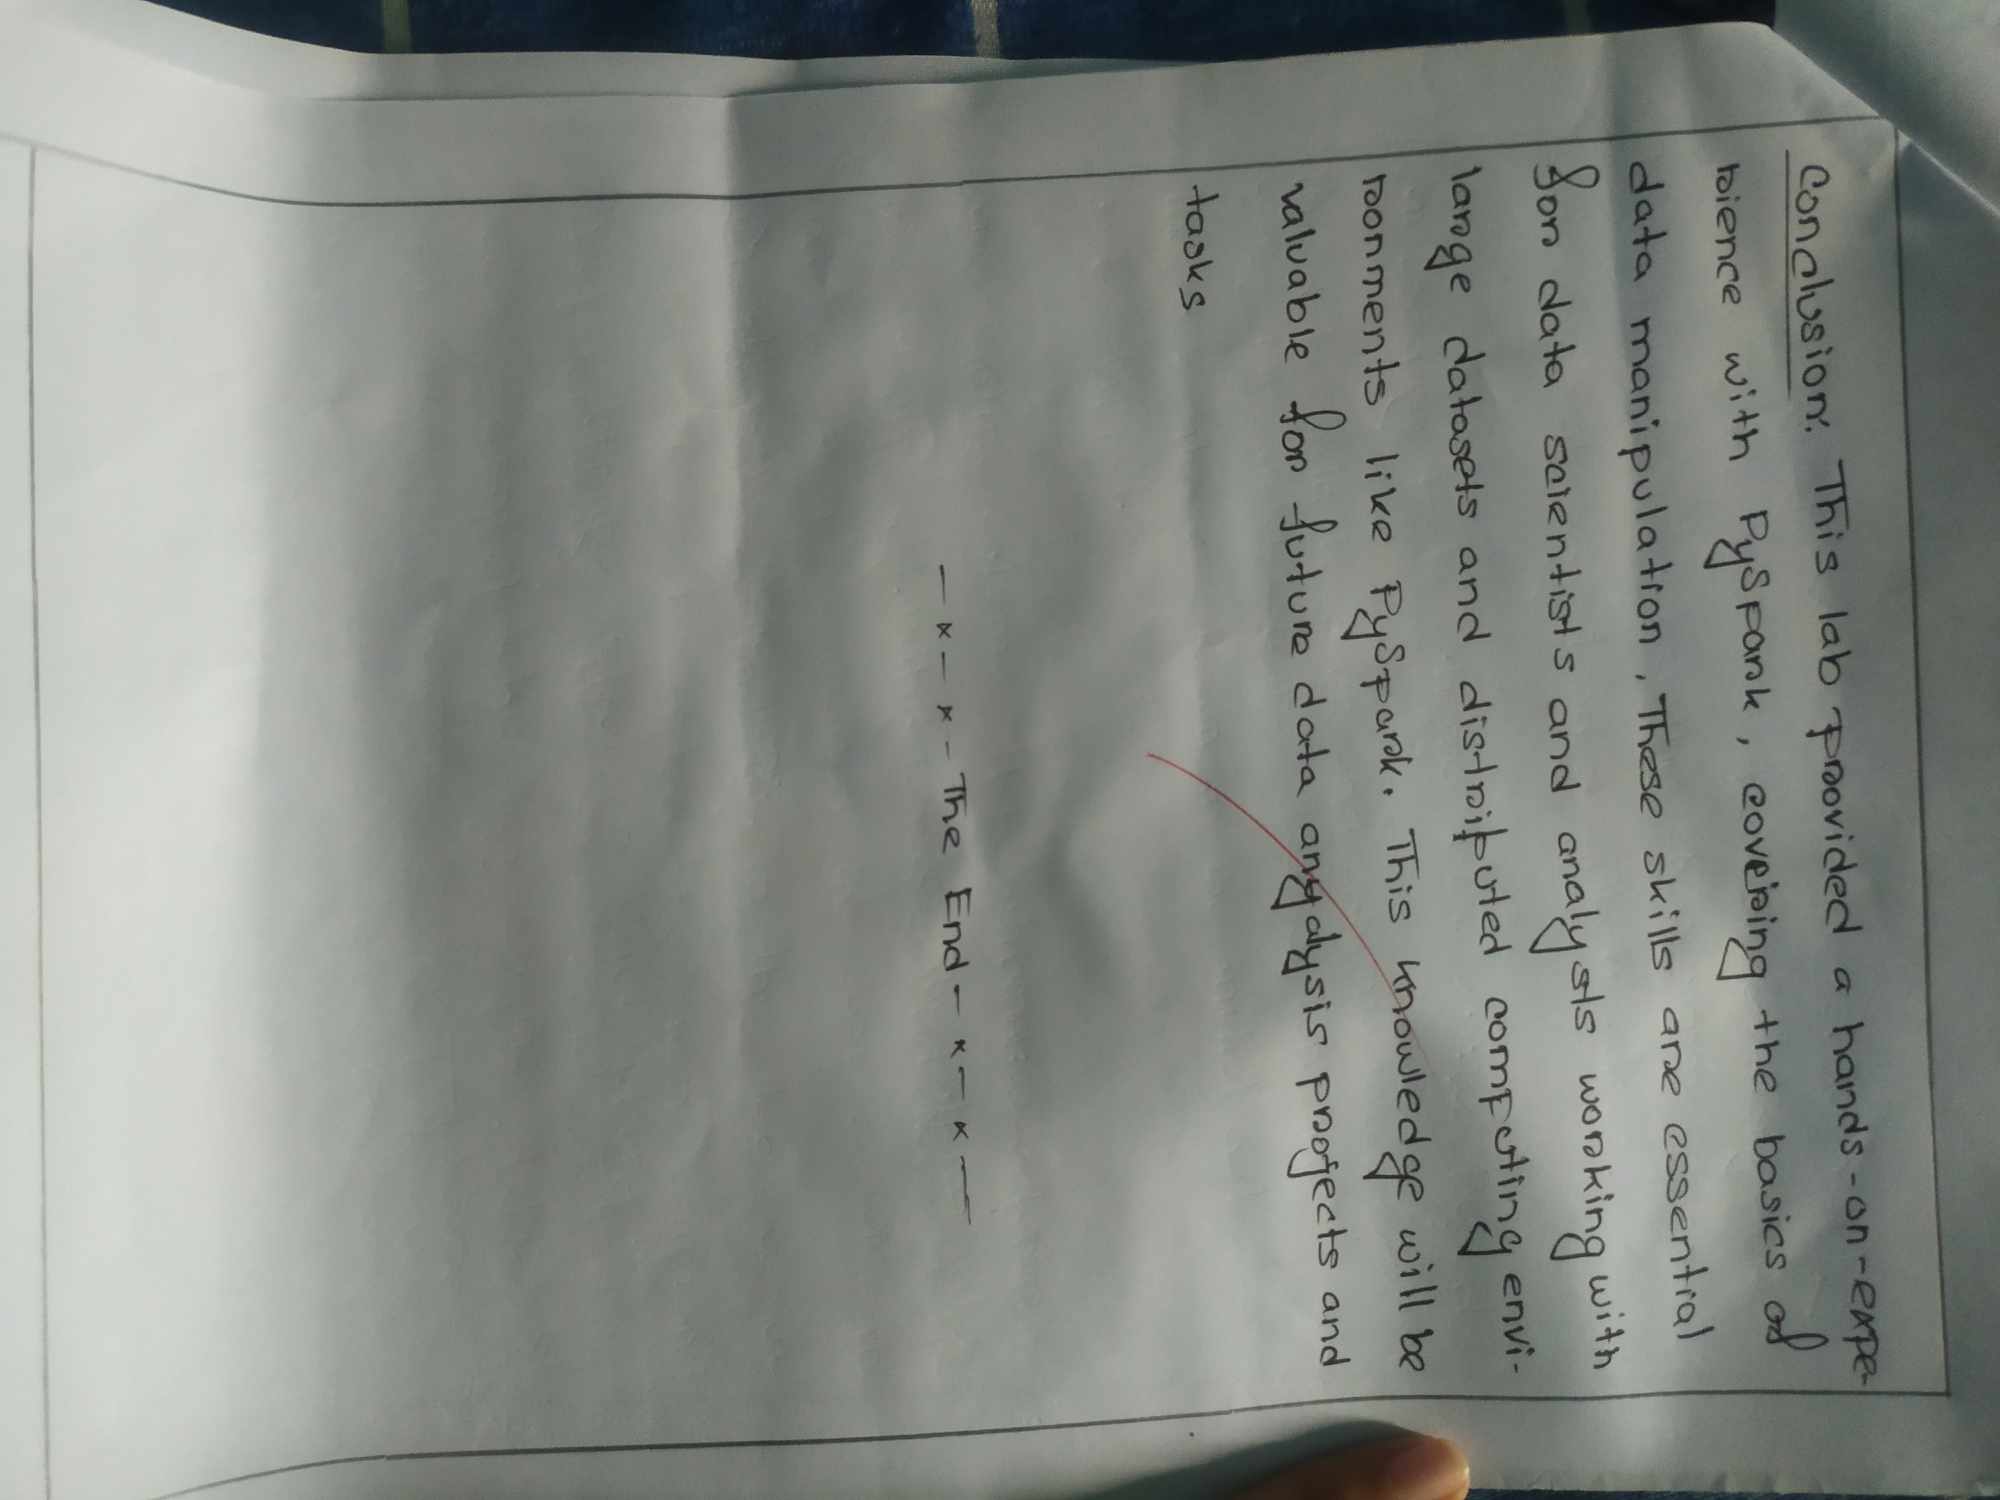 Conclusion: This lab provided a hands-on-expe-
rience with PySpark, covering the basics of
data manipulation. These skills are essential
for data scientists and analysts working with
large datasets and distributed computing envi-
ronments like PySpark. This knowledge will be
valuable for future data anyalysis projects and
tasks
— x — x - The End — x — x —